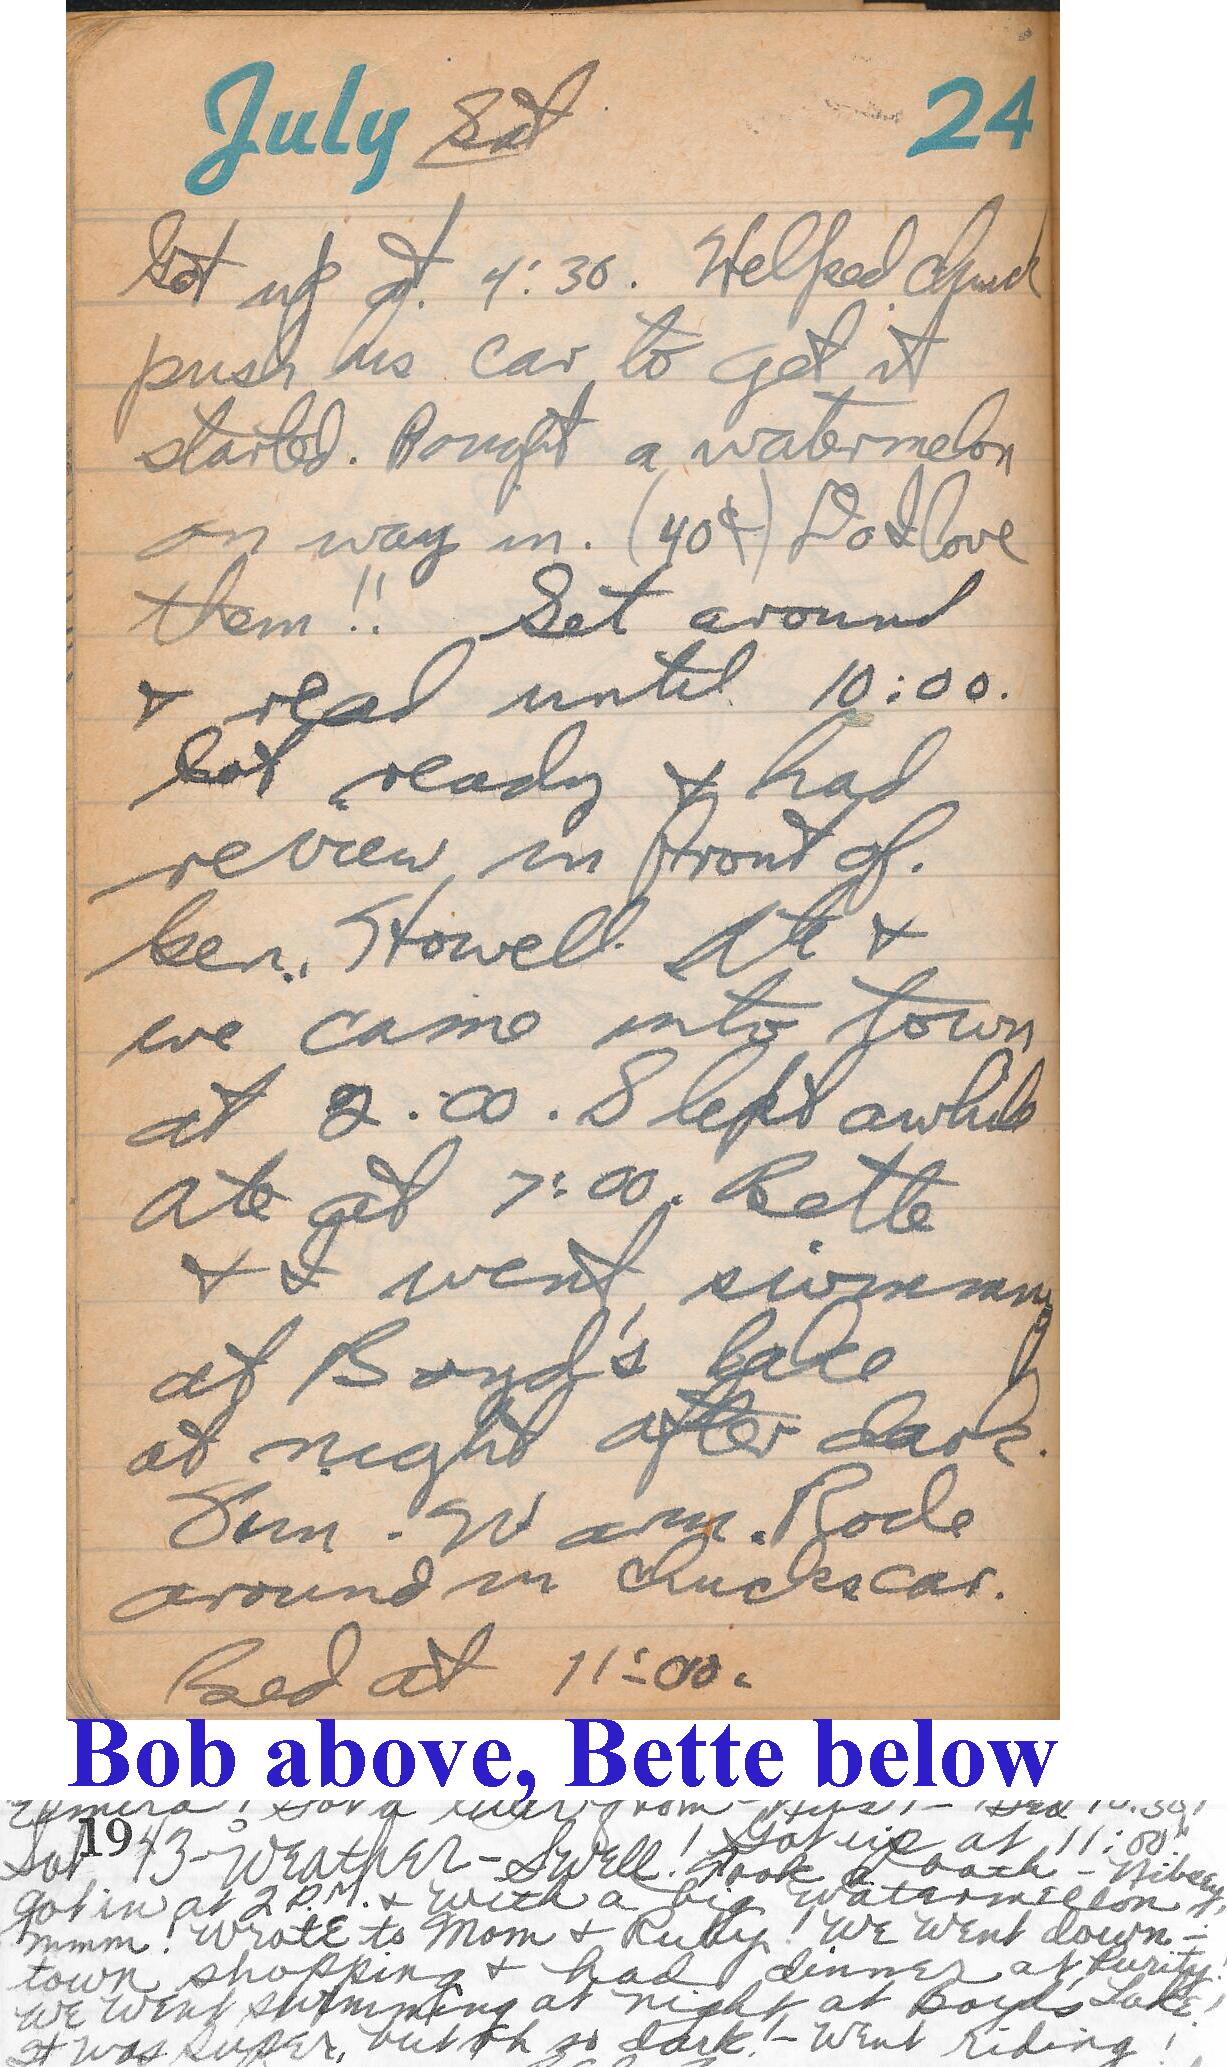 July Sat 24
Got up at 4:30. Helped Chuck
push his car to get it
started. Bought a watermelon
on way in. (40¢) Do I love
them!! Set around
& read until 10:00.
Got ready & had
review in front of.
Gen. Howell. Ate &
we came into town
at 2:00. Slept awhile
Ate at 7:00. Bette
& I went swimming
at Boyd's Lake
at night after dark.
Fun. Warm. Rode
around in Chucks car.
Bed at 11:00.
Bob above, Bette below
! Got a letter from - - Bed 10:30!
Sat 1943 - WEATHER - SWELL! Got up at 11:00"
Took a bath -
got in at 2 P.M. & with a big watermelon,
mmm! Wrote to Mom & Ruby! We went down-
town shopping & had dinner at Purity!
We went swimming at night at Boyds Lake!
It was super, but oh so dark! - Went riding!